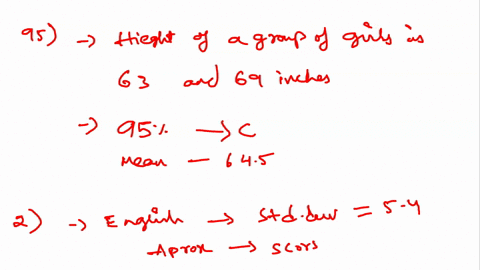 95) → Hieght of a group of girls is
63 and 69 inches
→ 95% → C
mean — 64.5
2) → English → Std.dev = 5.4
Aprox → scors